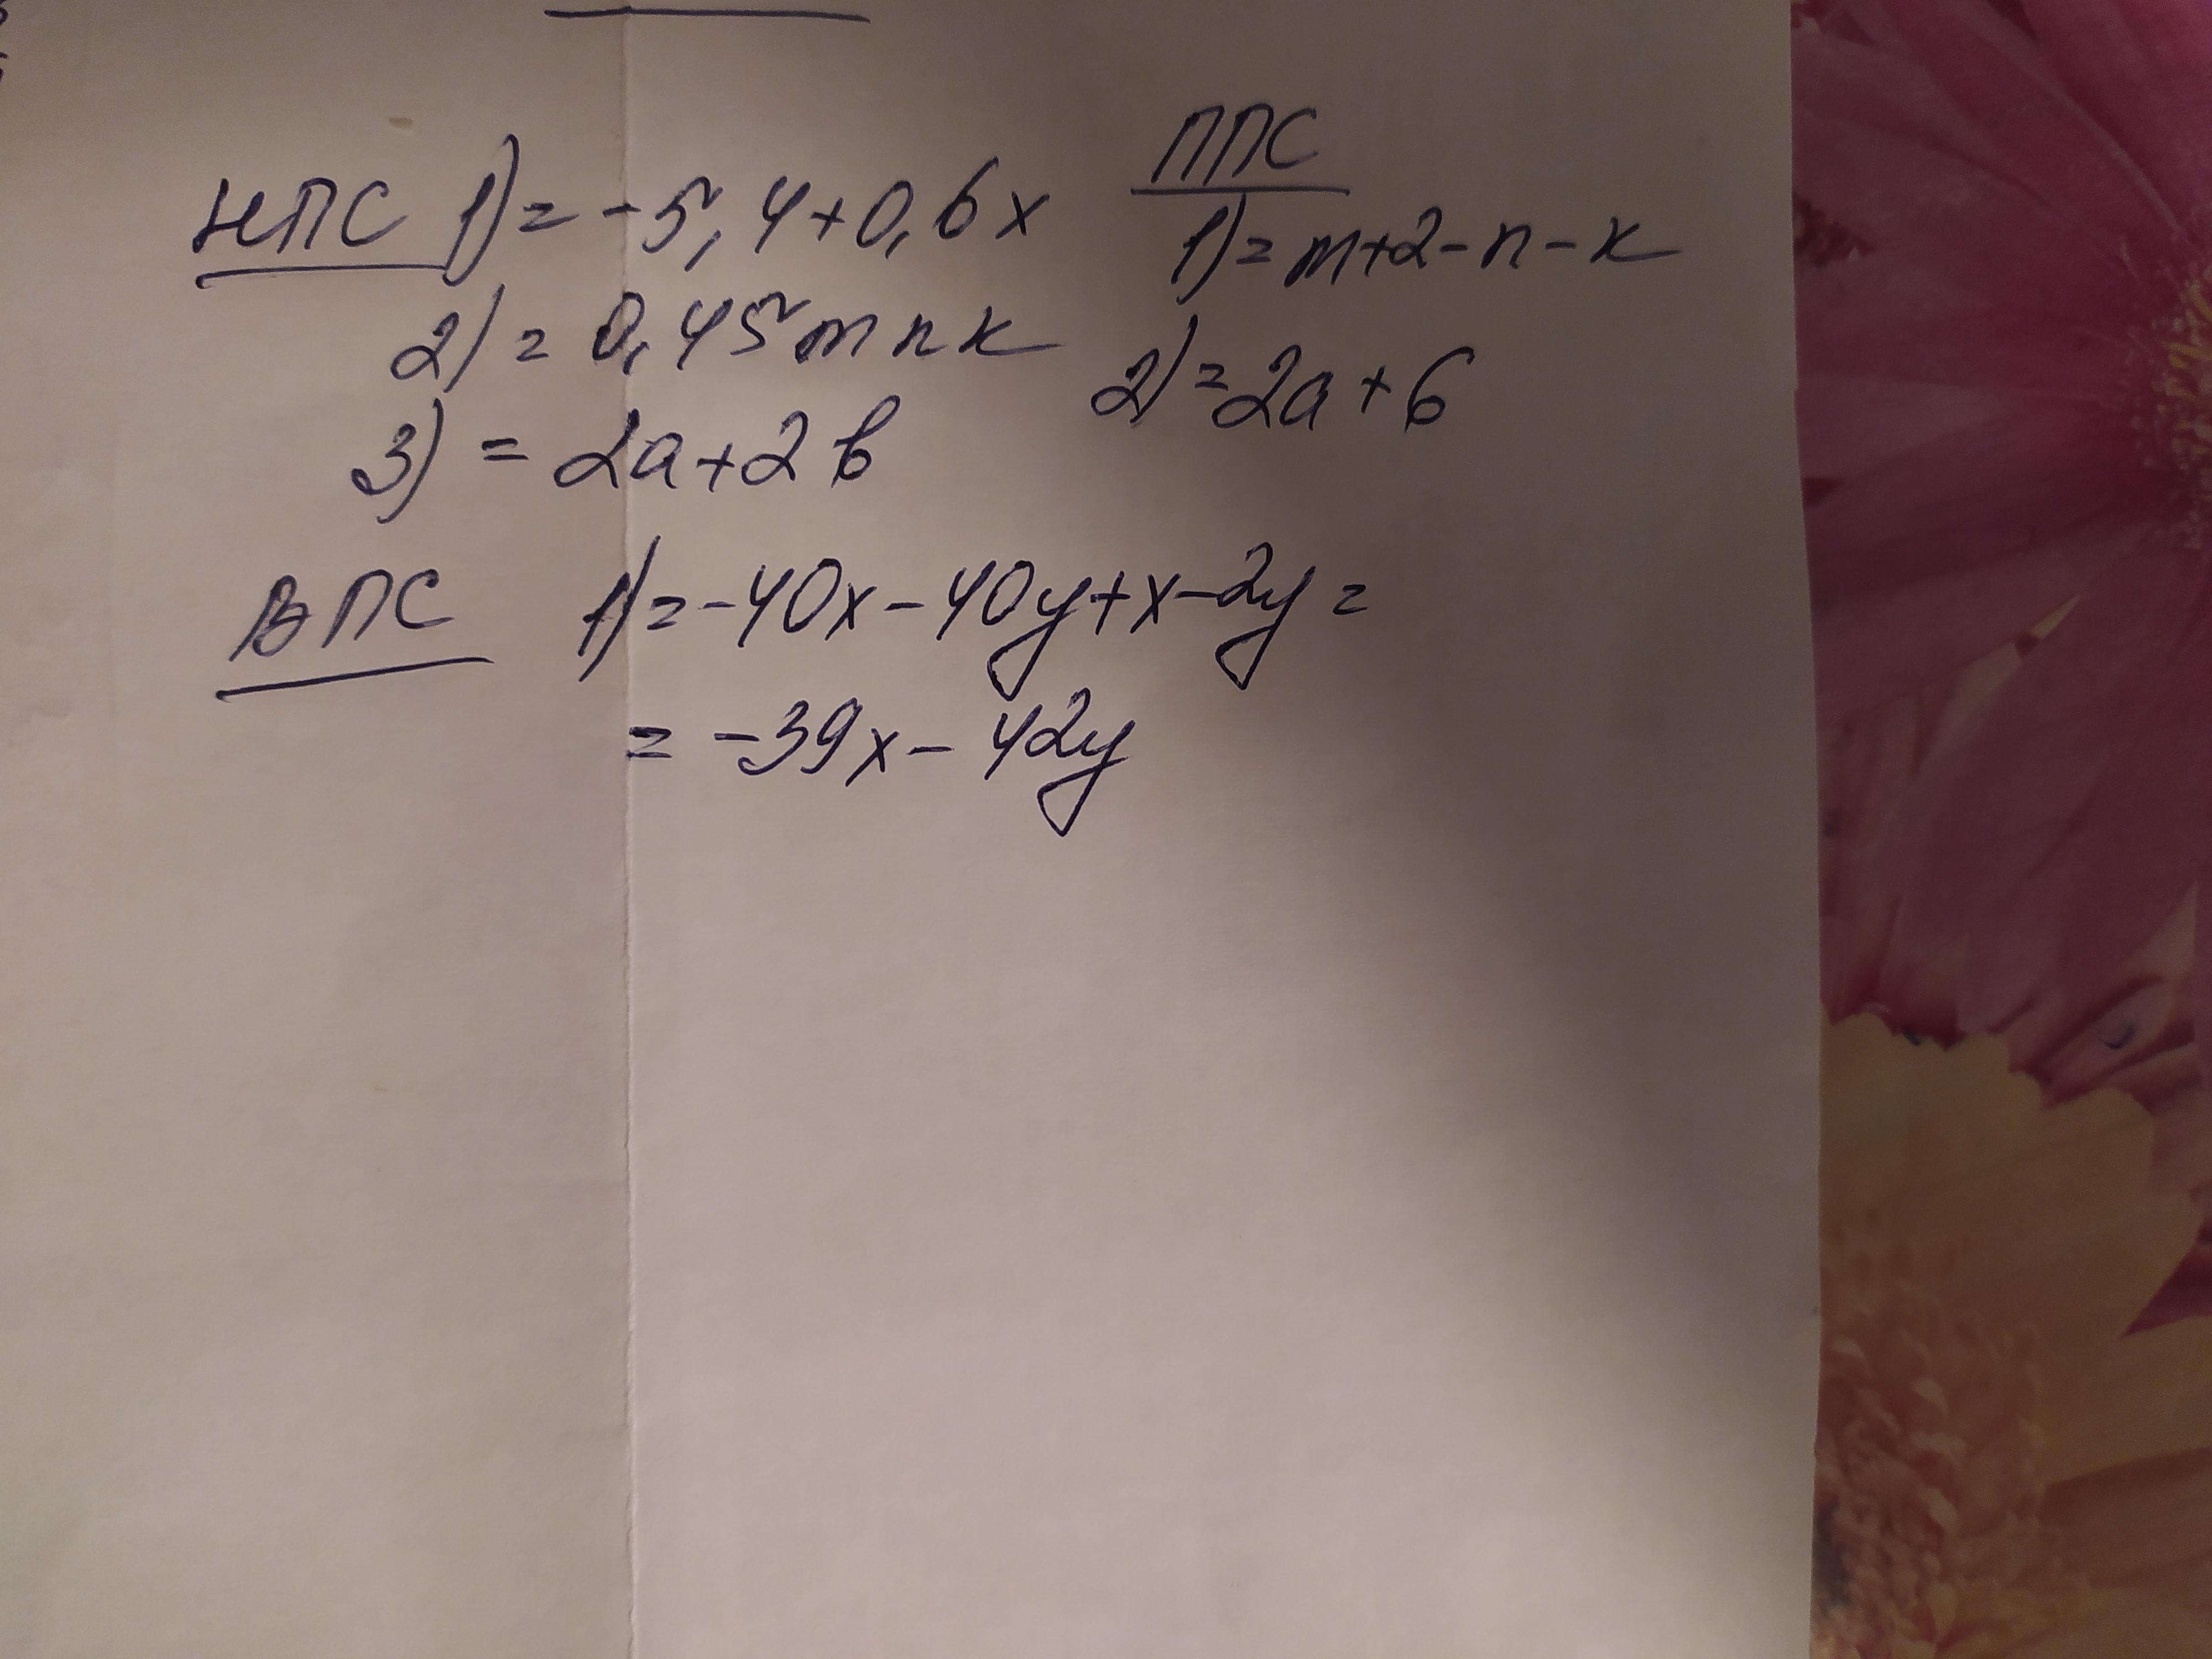 НПС 1) = -5,4+0,6x
2) = 0,45mnk
3) = 2a+2b
ППС
1) = m+2-n-k
2) = 2a+6
ВПС 1) = -40x-40y+x-2y=
= -39x-42y